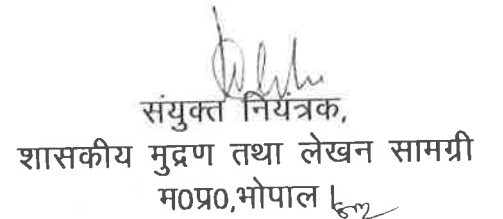 संयुक्त नियंत्रक,
शासकीय मुद्रण तथा लेखन सामग्री
म0प्र0,भोपाल